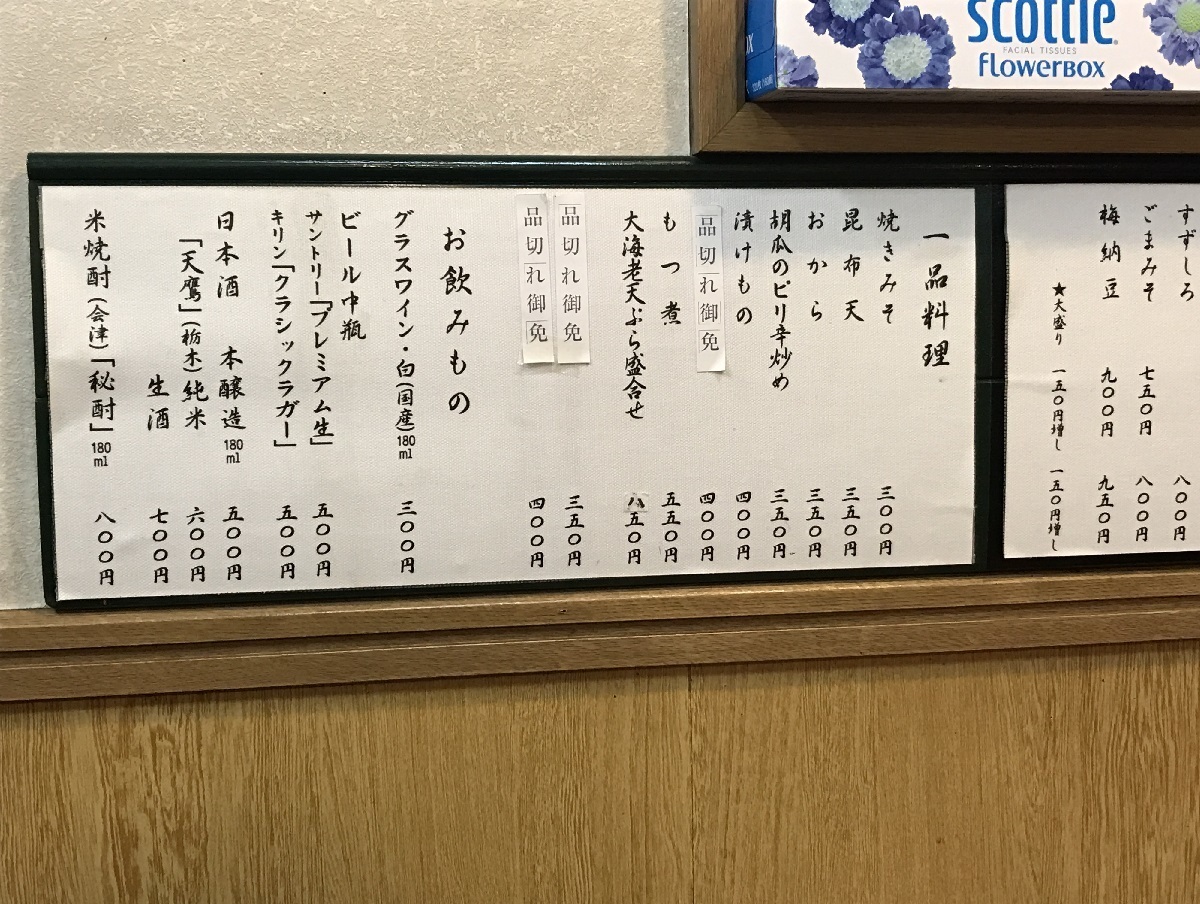 scottie
FACIAL TISSUES
FLOWERBOX
すずしろ 八〇〇円
ごまみそ 七五〇円 八〇〇円
梅納豆 九〇〇円 九五〇円
★大盛り 一五〇円増し 一五〇円増し
一品料理
焼きみそ 三〇〇円
昆布天 三五〇円
おから 三五〇円
胡瓜のピリ辛炒め 三五〇円
漬けもの 四〇〇円
品切れ御免 四〇〇円
もつ煮 五五〇円
大海老天ぷら盛合せ 八五〇円
品切れ御免 三五〇円
品切れ御免 四〇〇円
お飲みもの
グラスワイン・白(国産)180ml 三〇〇円
ビール中瓶
サントリー「プレミアム生」 五〇〇円
キリン「クラシックラガー」 五〇〇円
日本酒 本醸造180ml 五〇〇円
「天鷹」(栃木)純米 六〇〇円
生酒 七〇〇円
米焼酎(会津)「秘酎」180ml 八〇〇円